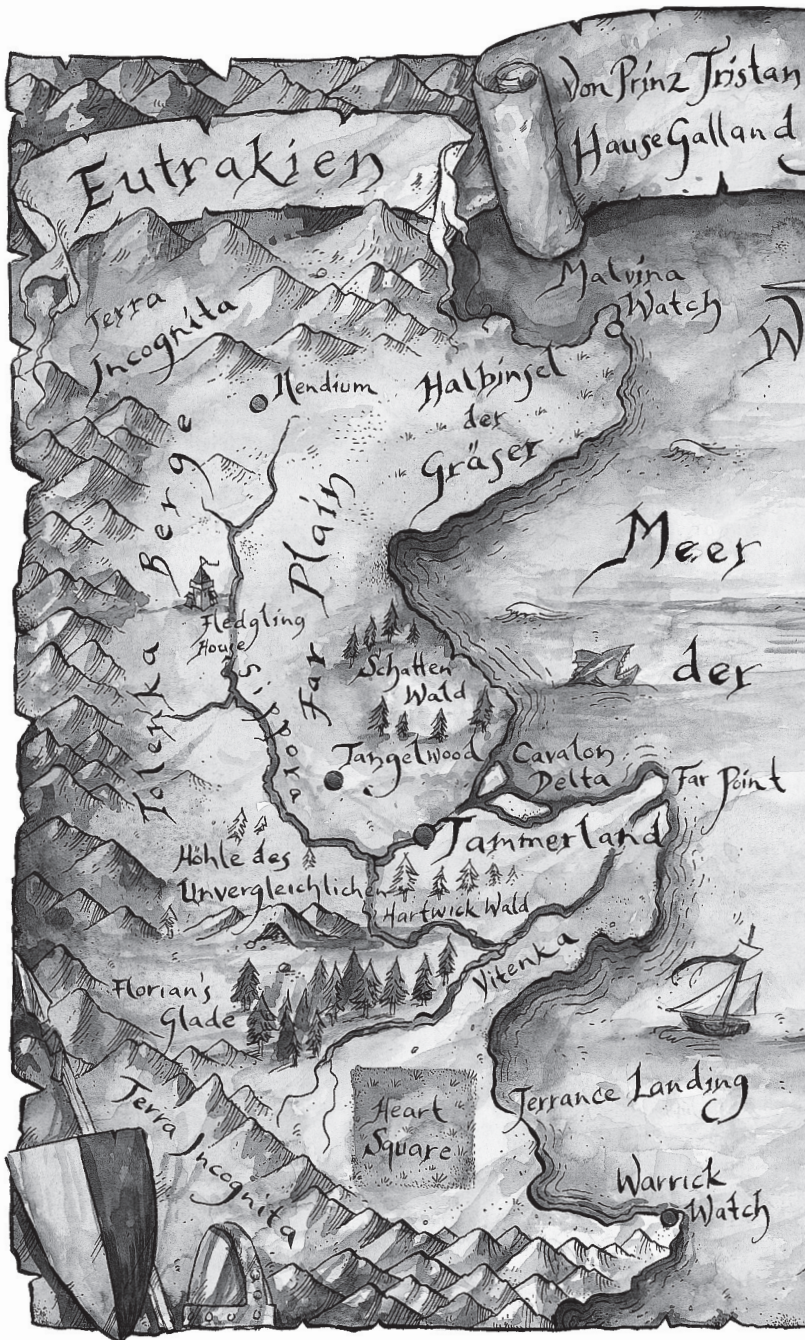 Von Prinz Tristan
Hause Galland
Eutrakien
Malvina
Watch
Terra
Incognita
W
Ilendium
Halbinsel
der
Gräser
Tolenka Berge
Far Plain
Meer
Fledgling
House
Sippora
Schatten
Wald
der
Tangelwood
Cavalon
Delta
Far Point
Tammerland
Höhle des
Unvergleichlichen
Hartwick Wald
Vitenka
Florian's
Glade
Heart
Square
Terrance Landing
Terra Incognita
Warrick
Watch